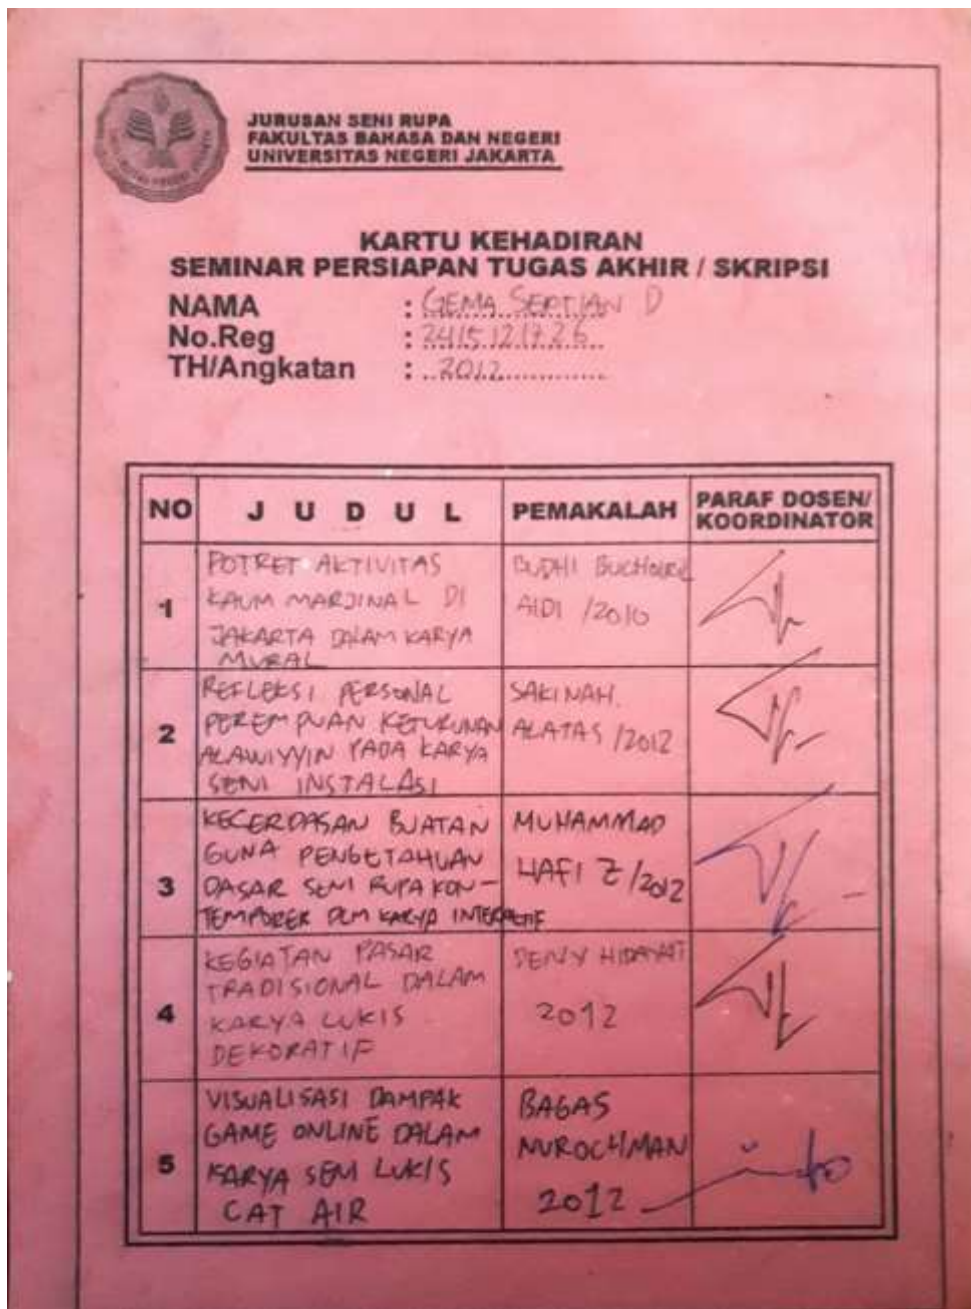 JURUSAN SENI RUPA
FAKULTAS BAHASA DAN NEGERI
UNIVERSITAS NEGERI JAKARTA
KARTU KEHADIRAN
SEMINAR PERSIAPAN TUGAS AKHIR / SKRIPSI
NAMA : GEMA SEPTIAN D
No.Reg : 2415121726
TH/Angkatan : 2012
NO J U D U L PEMAKALAH PARAF DOSEN/
KOORDINATOR
1
POTRET AKTIVITAS
KAUM MARJINAL DI
JAKARTA DALAM KARYA
MURAL
BUDHI
AIDI /2010
2
REFLEKSI PERSONAL
PEREMPUAN KETURUNAN
ALAWIYYIN PADA KARYA
SENI INSTALASI
SAKINAH.
ALATAS /2012
3
KECERDASAN BUATAN
GUNA PENGETAHUAN
DASAR SENI RUPA KON-
TEMPORER DLM KARYA INTERAKTIF
MUHAMMAD
HAFI Z /2012
4
KEGIATAN PASAR
TRADISIONAL DALAM
KARYA LUKIS
DEKORATIF
DENNY HIDAYAT
2012
5
VISUALISASI DAMPAK
GAME ONLINE DALAM
KARYA SENI LUKIS
CAT AIR
BAGAS
NUROCHMAN
2012